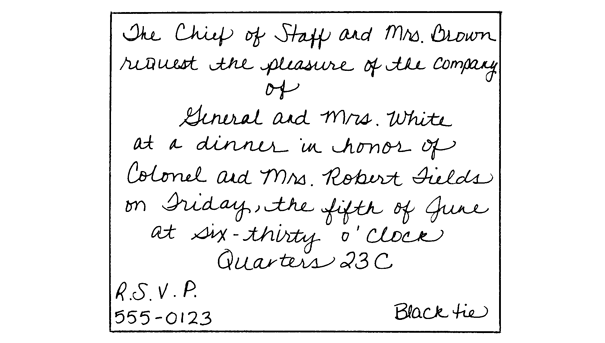 The Chief of Staff and Mrs. Brown
request the pleasure of the company
of
General and Mrs. White
at a dinner in honor of
Colonel and Mrs. Robert Fields
on Friday, the fifth of June
at six-thirty o'clock
Quarters 23C
R.S.V.P.
555-0123
Black tie